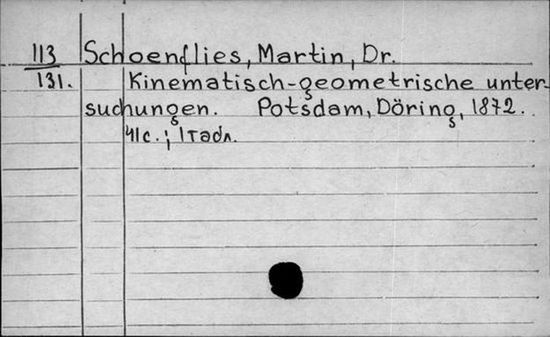 113 Schoenflies, Martin, Dr.
131. Kinematisch-geometrische unter-
suchungen. Potsdam, Döring, 1872.
41c.; 1табл.